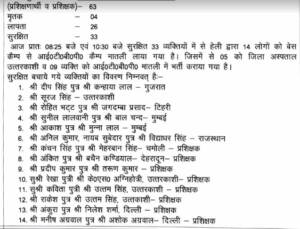 (प्रशिक्षणार्थी व प्रशिक्षक)- 63
मृतक - 04
लापता - 26
सुरक्षित - 33
आज प्रातः 08:25 बजे एवं 10:30 बजे सुरक्षित 33 व्यक्तियों में से हेली द्वारा 14 लोगों को बेस
कैम्प से आई0टी0बी0पी0 कैम्प मातली लाया गया है। जिसमें से 05 को जिला अस्पताल
उत्तरकाशी व 09 व्यक्ति को आई0टी0बी0पी0 मातली में भर्ती कराया गया है।
सुरक्षित बचाये गये व्यक्तियों का विवरण निम्नवत् हैः-
1. श्री दीप सिंह पुत्र श्री कन्हाया लाल - गुजरात
2. श्री सूरज सिंह - उत्तरकाशी
3. श्री रोहित भट्ट पुत्र श्री जगदम्बा प्रसाद- टिहरी
4. श्री सुनील लालवानी पुत्र श्री बाल चन्द- मुम्बई
5. श्री आकाश पुत्र श्री मुन्ना लाल - मुम्बई
6. श्री अनिल कुमार, नायब सुबेदार पुत्र श्री विद्याधर सिंह - राजस्थान
7. श्री कंचन सिंह पुत्र श्री मेहरबान सिंह- चमोली - प्रशिक्षक
8. श्री अंकित पुत्र श्री कण्डियाल- देहरादून- प्रशिक्षक
9. श्री प्रदीप कुमार पुत्र श्री तरूण कुमार - प्रशिक्षक
10. सुश्री रेखा पुत्री श्री के0एस0 अग्निहोत्री, उत्तरकाशी- प्रशिक्षक
11. सुश्री कविता पुत्री श्री उत्तम सिंह, उत्तरकाशी - प्रशिक्षक
12. श्री राकेश पुत्र श्री उत्तम सिंह, उत्तरकाशी- प्रशिक्षक
13. श्री अंकुरा पुत्र श्री निलेश शर्मा, दिल्ली - प्रशिक्षक
14. श्री मनीष अग्रवाल पुत्र श्री अशोक अग्रवाल- दिल्ली - प्रशिक्षक